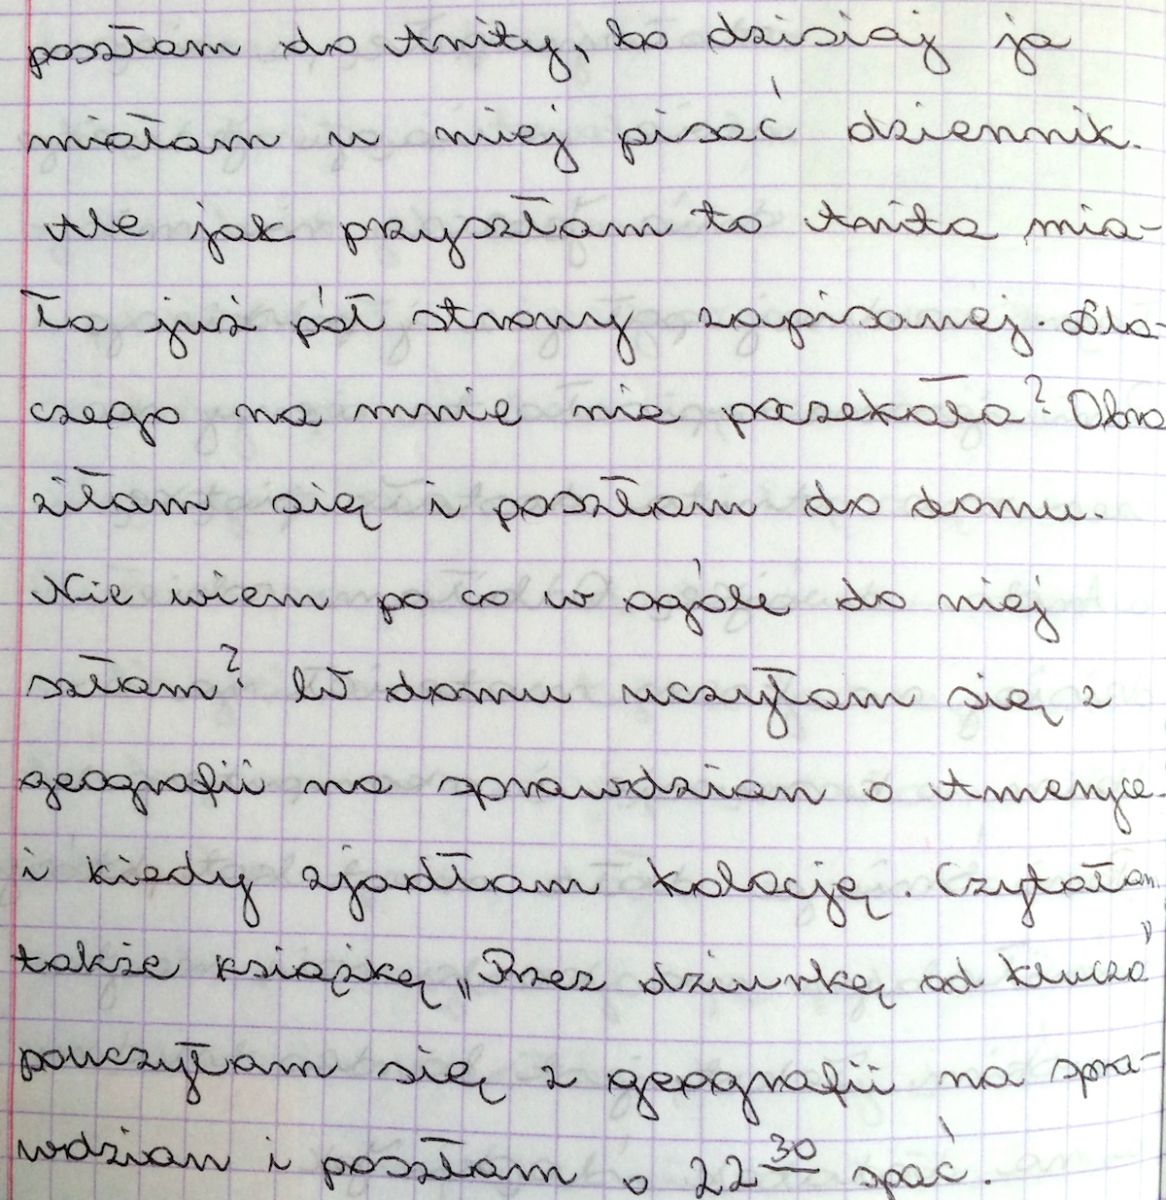 poszłam do Anity, bo dzisiaj ja
miałam u niej pisać dziennik.
Ale jak przyszłam to Anita mia-
ła już pół strony zapisanej. Dla-
czego na mnie nie poczekała? Obra
ziłam się i poszłam do domu.
Nie wiem po co w ogóle do niej
szłam? W domu uczyłam się z
geografii na sprawdzian o Ameryce.
i kiedy zjadłam kolację. Czytałam
także książkę „Przez dziurkę od klucza"
pouczyłam się z geografii na spra-
wdzian i poszłam o 22 30 spać.